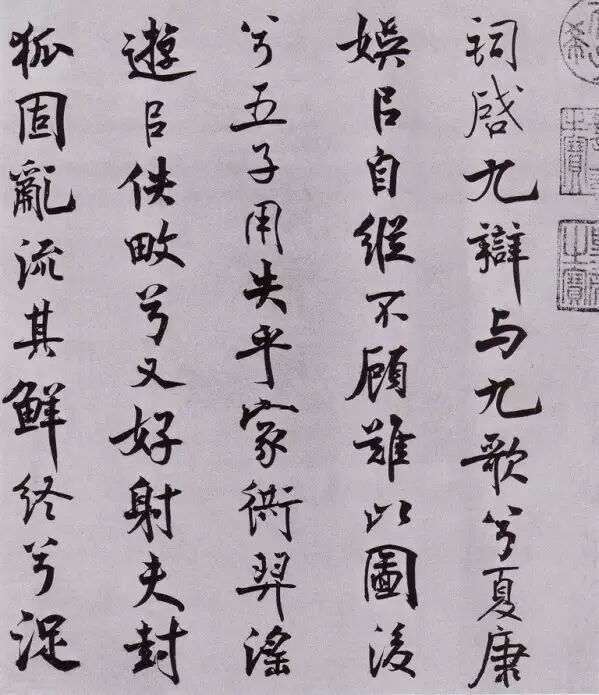 詞啓九辯与九歌兮夏康
娛㠯自縱不顧難以圖後
兮五子用失乎家衖羿滛
遊㠯佚畋兮又好射夫封
狐固亂流其鮮終兮浞